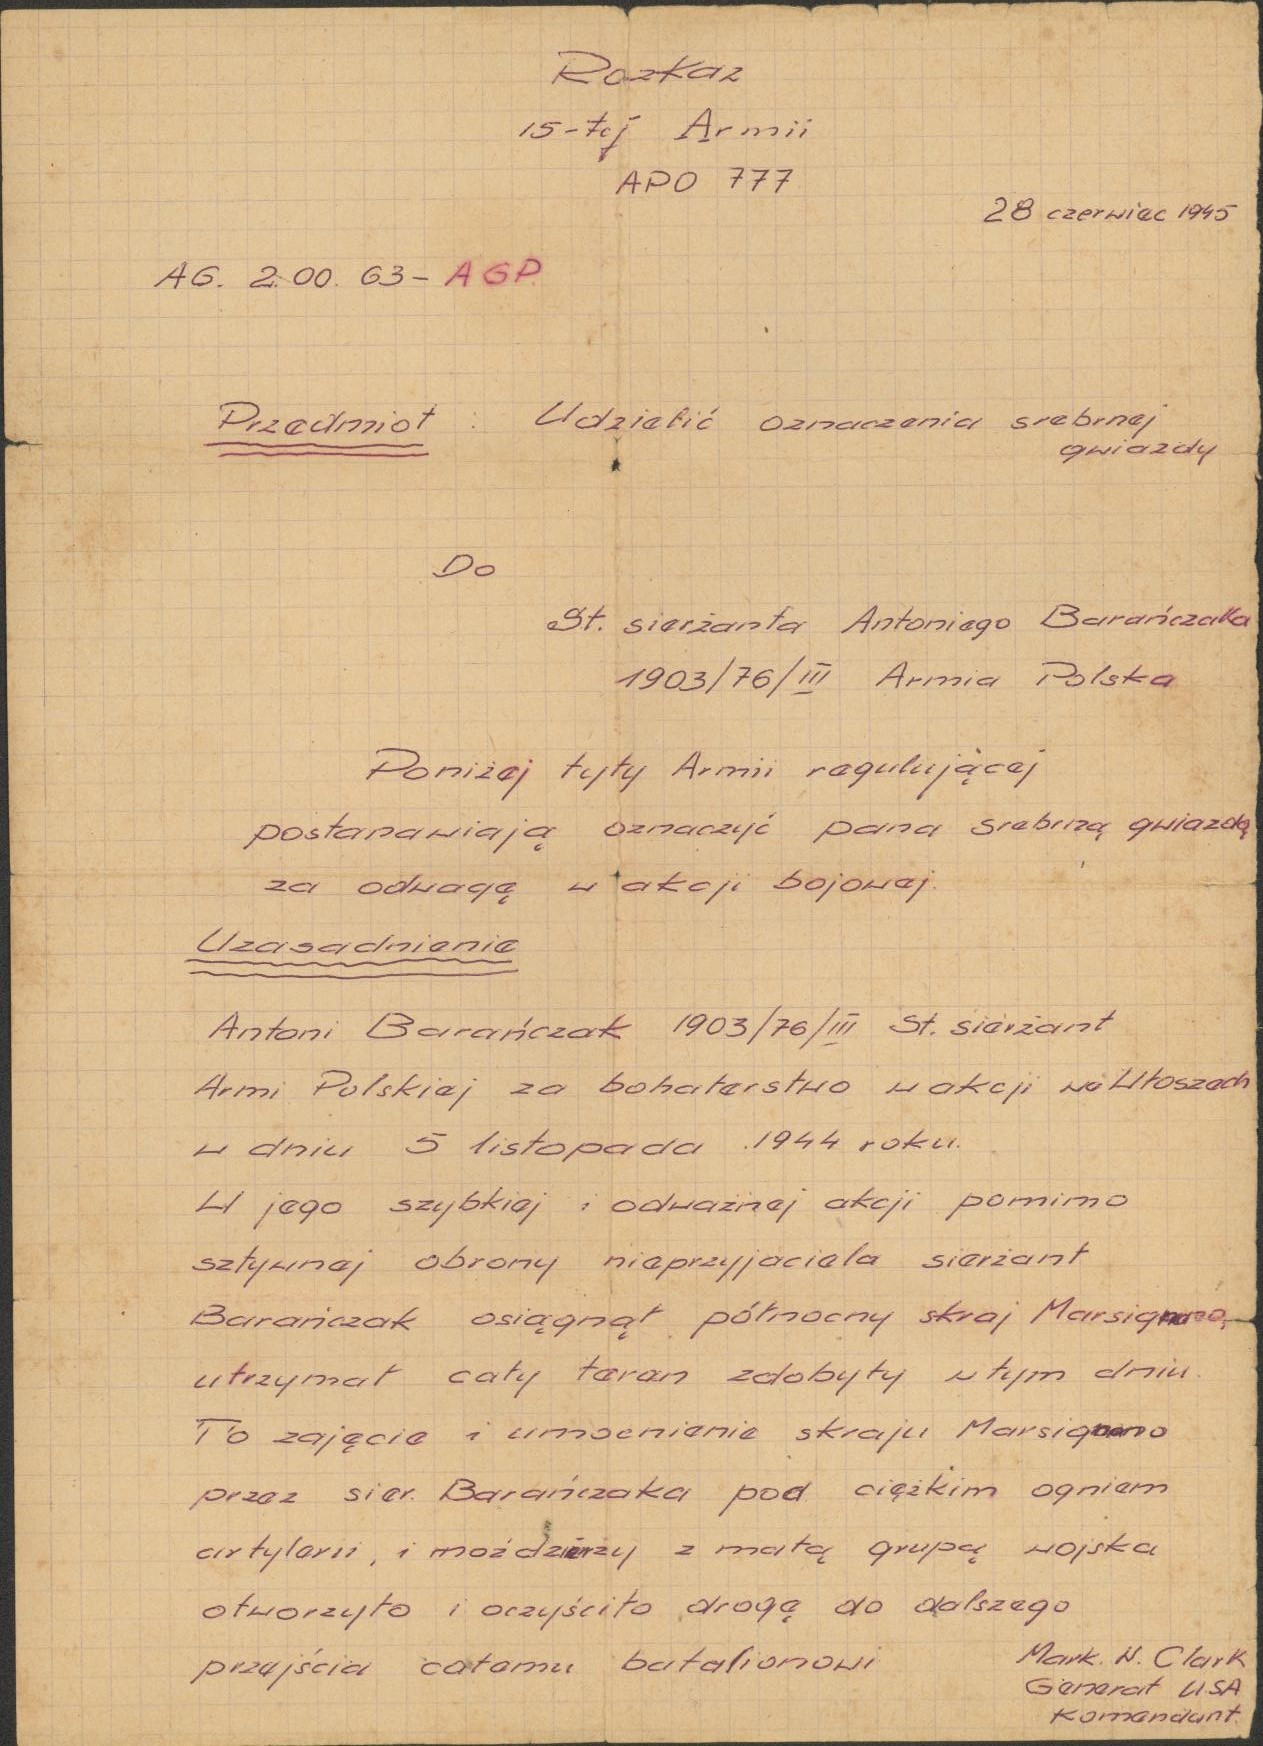 Rozkaz
15-tej Armii
APO 777
28 czerwiec 1945
AG. 2.00. 63 - AGP.
Przedmiot : Udzielić oznaczenia srebrnej
gwiazdy
Do
St. sierżanta Antoniego Barańczaka
1903/76/III Armia Polska
Poniżej tyły Armii regulującej
postanawiają oznaczyć pana srebrną gwiazdą
za odwagę w akcji bojowej.
Uzasadnienie
Antoni Barańczak 1903/76/III St. sierżant
Armi Polskiej za bohaterstwo w akcji we Włoszech
w dniu 5 listopada 1944 roku.
W jego szybkiej i odważnej akcji pomimo
sztywnej obrony nieprzyjaciela sierżant
Barańczak osiągnął północny skraj
utrzymał cały teren zdobyty w tym dniu.
To zajęcie i umocnienie skraju
przez sier. Barańczaka pod ciężkim ogniem
artylerii, i moździerzy z małą grupą wojska
otworzyło i oczyściło drogę do dalszego
przejścia całemu batalionowi
Mark. W. Clark
Generał USA
Komendant.